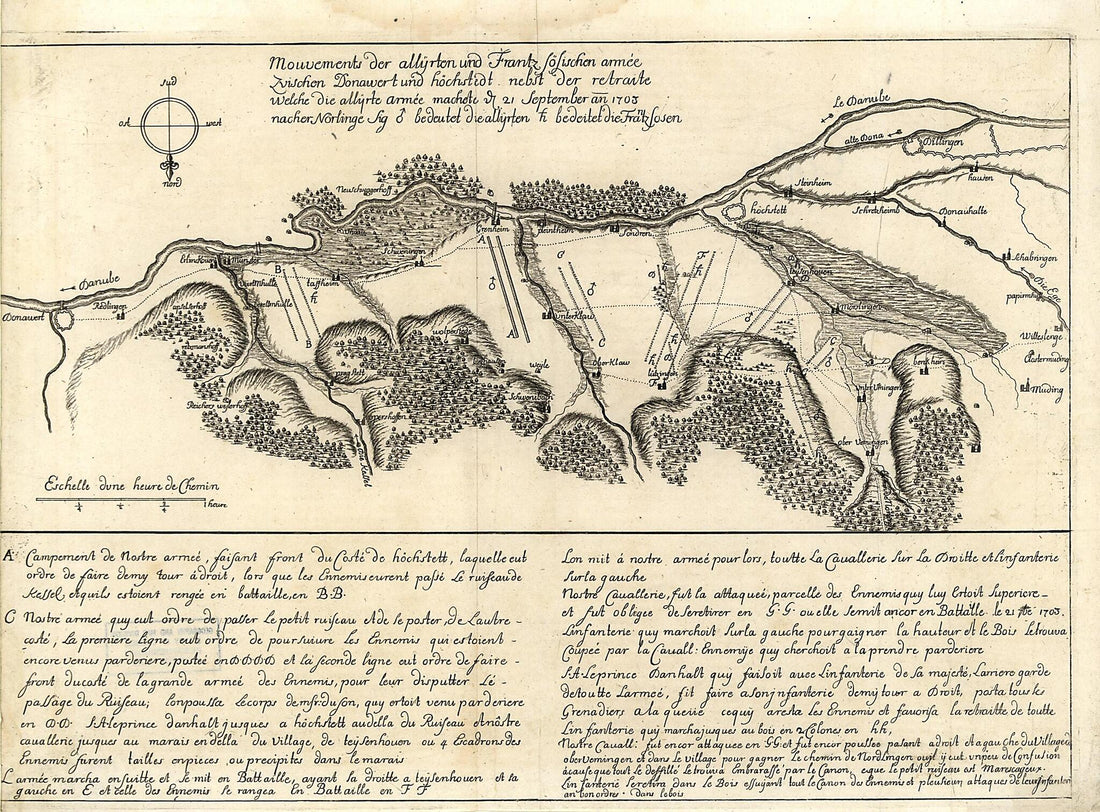 Mouvements der allijrten und Frantzösischen armée
zvischen Donawert und höchstedt nebst der retraite
Welche die allijrte armée machete 21 September 1703
nacher Nörlinge Sig ♂ bedeutet die allijrten ♄ bedeitet die Frätzosen
sud
ost west
nord
Le Danube
alte Dona
Dillingen
Steinheim
hausen
höchstett
Schretzheimb
Donauhalle
Schabringen
Die Ege
papirmuhl
Wittesleinge
Clostermuding
Muding
Neuschwggerhoff
Grenheim
pleintheim
Sondren
Schwoningen
taffheim
Erlinchouen
Munster
Danube
Donawert
Redlingen
A
B
♄
♂
C
♂
D
F
teysenhouen
Mörslingen
Unterklaw
oberklaw
lutzingen
wolperstet
Weyle
Schwonbach
berckhein
Unter Uhingen
ober Vemingen
Reichers weijerhof
D
G
C
B
A
F
Eschelle dvne heure de Chemin
1 heure
A Campement de Nostre armeé, faisant front du Costé de höchstett, laquelle eut
ordre de faire demy tour à droit, lors que les Ennemis eurent passé Le ruisseau de
Kessel, et quils estoient rengée en battaille, en B.B.
C Nostre armeé quy eut ordre de passer Le petit ruiseau et de se poster, de Lautre-
costé, La premiere ligne eut ordre de poursuiure les Ennemis qui estoient-
encore venus parderiere, postée en D D D D et la seconde ligne eut ordre de faire-
front du costé de la grande armeé des Ennemis, pour leur disputter Lé-
passage du Ruisseau; lon poussa Le corps de mr: du son, quy ertoit venu parderiere
en D.D. S:A: le prince danhalt jusques a höchstett audella du Ruiseau et nôstre
cauallerie jusques au marais en della du Village, de teijsenhouen ou 4 Escadrons des
Ennemis furent tailles en pieces, ou precipites dans le marais
L armée marcha en suitte et se mit en Battaille, ayant la droitte a teijsenhouen et la
gauche en E et celle des Ennemis se rangea En Battaille en F F
Lon mit á nostre armeé pour lors, toutte La Cauallerie sur La Droitte et linfanterie
sur la gauche
Nostre Cauallerie, fut la attaqueé, par celle des Ennemis quy luy Ertoit Superiere-
et fut obligeé de se retirer en G. G. ou elle se mit ancor en Battalle le 21 7bre 1703.
Linfanterie quy marchoit sur la gauche pour gaigner la hauteur et le Bois se trouva
Coupeé par la Cauall: Ennemije quy cherchoit a la prendre parderiere
S:A: Le prince Danhalt quy faisoit auec linfanterie de sa majesté, Lariere garde
de toutte Larmeé, fit faire a son jnfanterie demy tour a Droit, posta tous les
Grenadiers a la queüe ce quy aresta les Ennemis et fauorisa la retraitte de toutte
Lin fanterie quy marcha jusques au bois en 2 Colones en hh,
Nostre Cauall: fut encor attaqueé en G.G et fut encor pousseé pasant a droit et a gauche du Village de
obervemingen et dans le Village pour gagner Le chemin de Nordlingen ou jl ij eut vn peu de Confusion
a cause que tout le deffilé se trouva Embarassé par le Canon, e que le petit ruiseau est Marescageux.
Lin fanterie se retira dans le Bois essuyant tout le Canon des Ennemis et plusieurs attaques de leur Infanterie
an bon ordre dans le bois